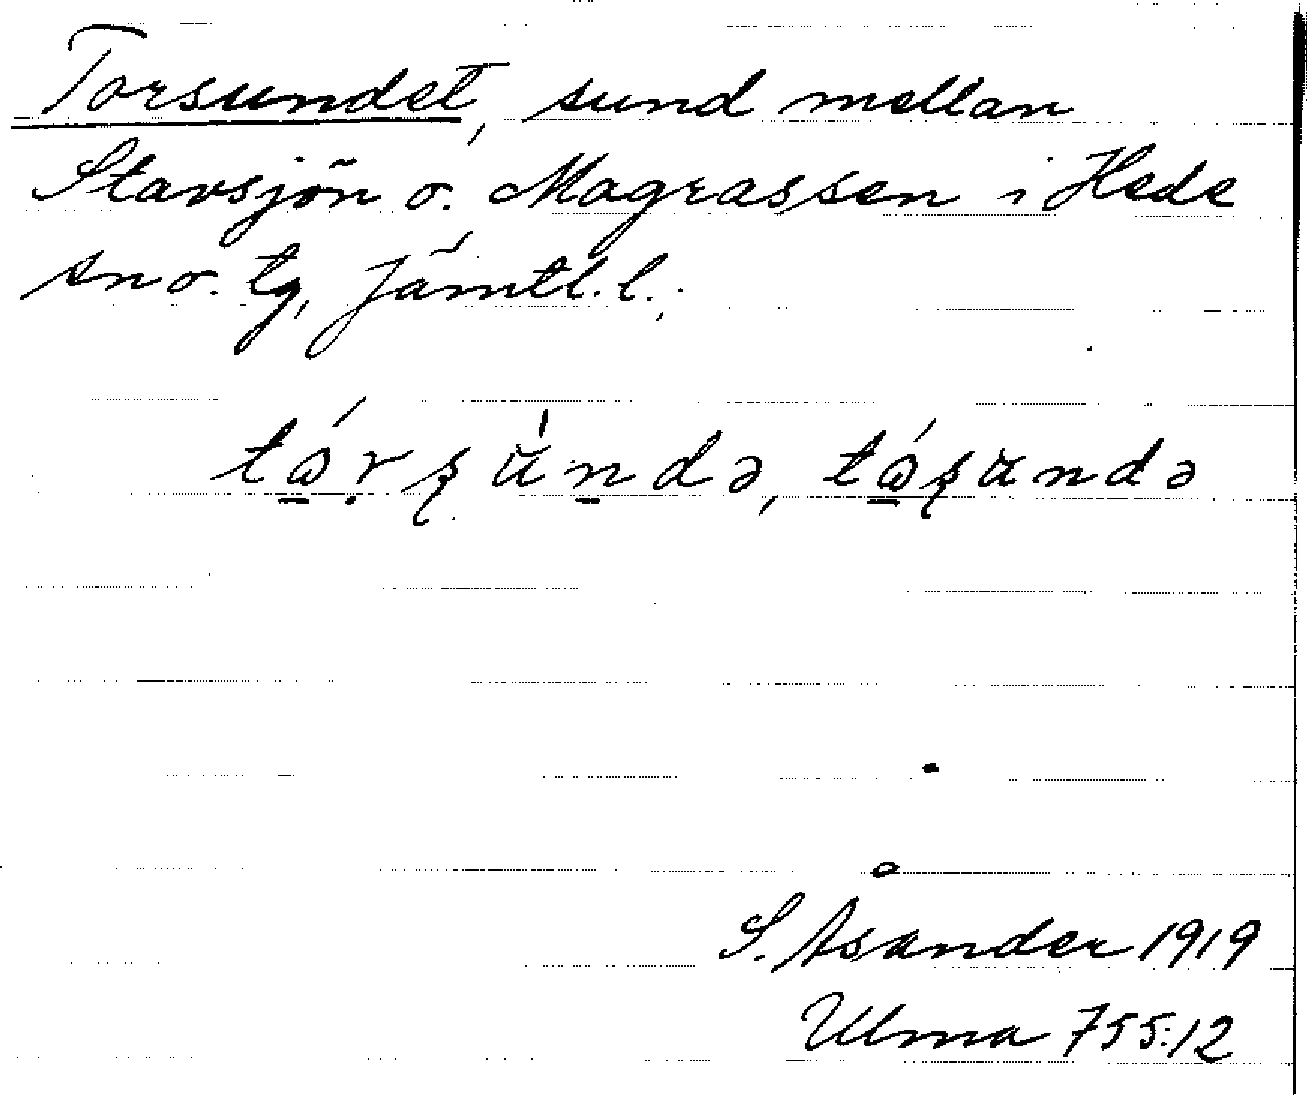 Torsundet, sund mellan
Stavsjön o. Magrassen i Hede
sn o. tg, Jämtl. l.
S. Åsander 1919
Ulma 755:12